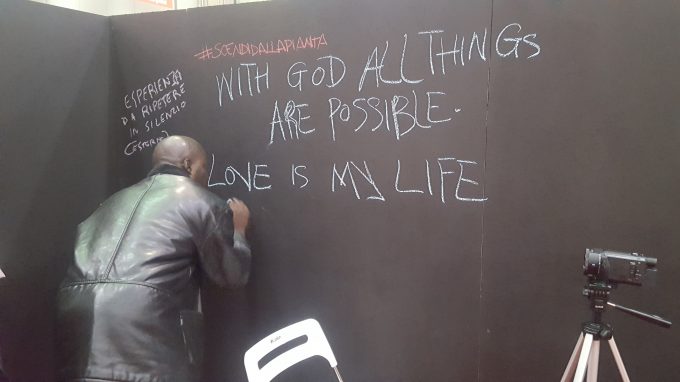 #SCENDIDALLAPIANTA
WITH GOD ALL THINGS
ARE POSSIBLE.
LOVE IS MY LIFE
ESPERIENZA
DA RIPETERE
IN SILENZIO